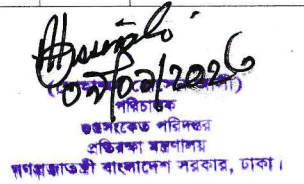 ০৯/০২/২০২৬
পরিচালক
গুপ্তসংকেত পরিদপ্তর
প্রতিরক্ষা মন্ত্রণালয়
গণপ্রজাতন্ত্রী বাংলাদেশ সরকার, ঢাকা।